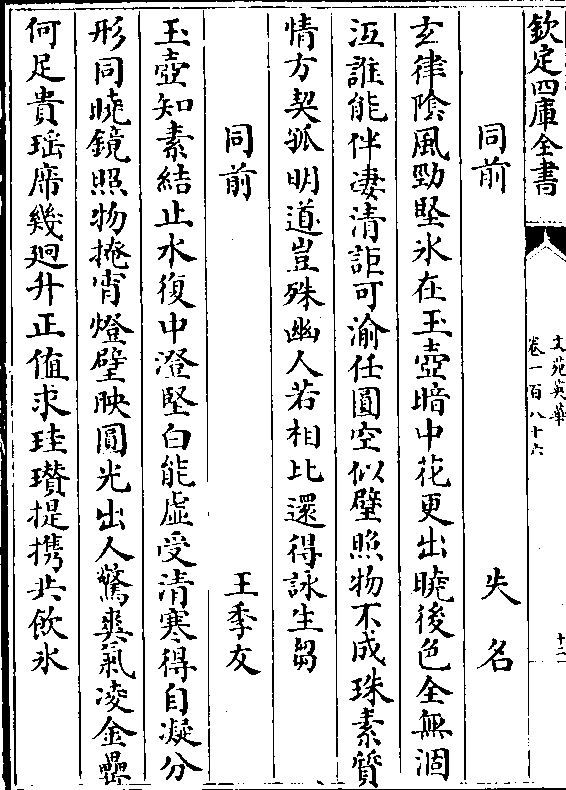 欽定四庫全書
文苑英華
卷一百八十六
十二
同前 失名
玄律陰風勁堅氷在玉壺暗中花更出曉後色全無涸
沍誰能伴凄清詎可渝任圓空似璧照物不成珠素質
情方契孤明道豈殊幽人若相比還得詠生芻
同前 王季友
玉壺知素結止水復中澄堅白能虛受清寒得自凝分
形同曉鏡照物掩宵燈璧映圓光出人驚爽氣凌金罍
何足貴瑶席幾廻升正值求珪瓉提携共飲氷